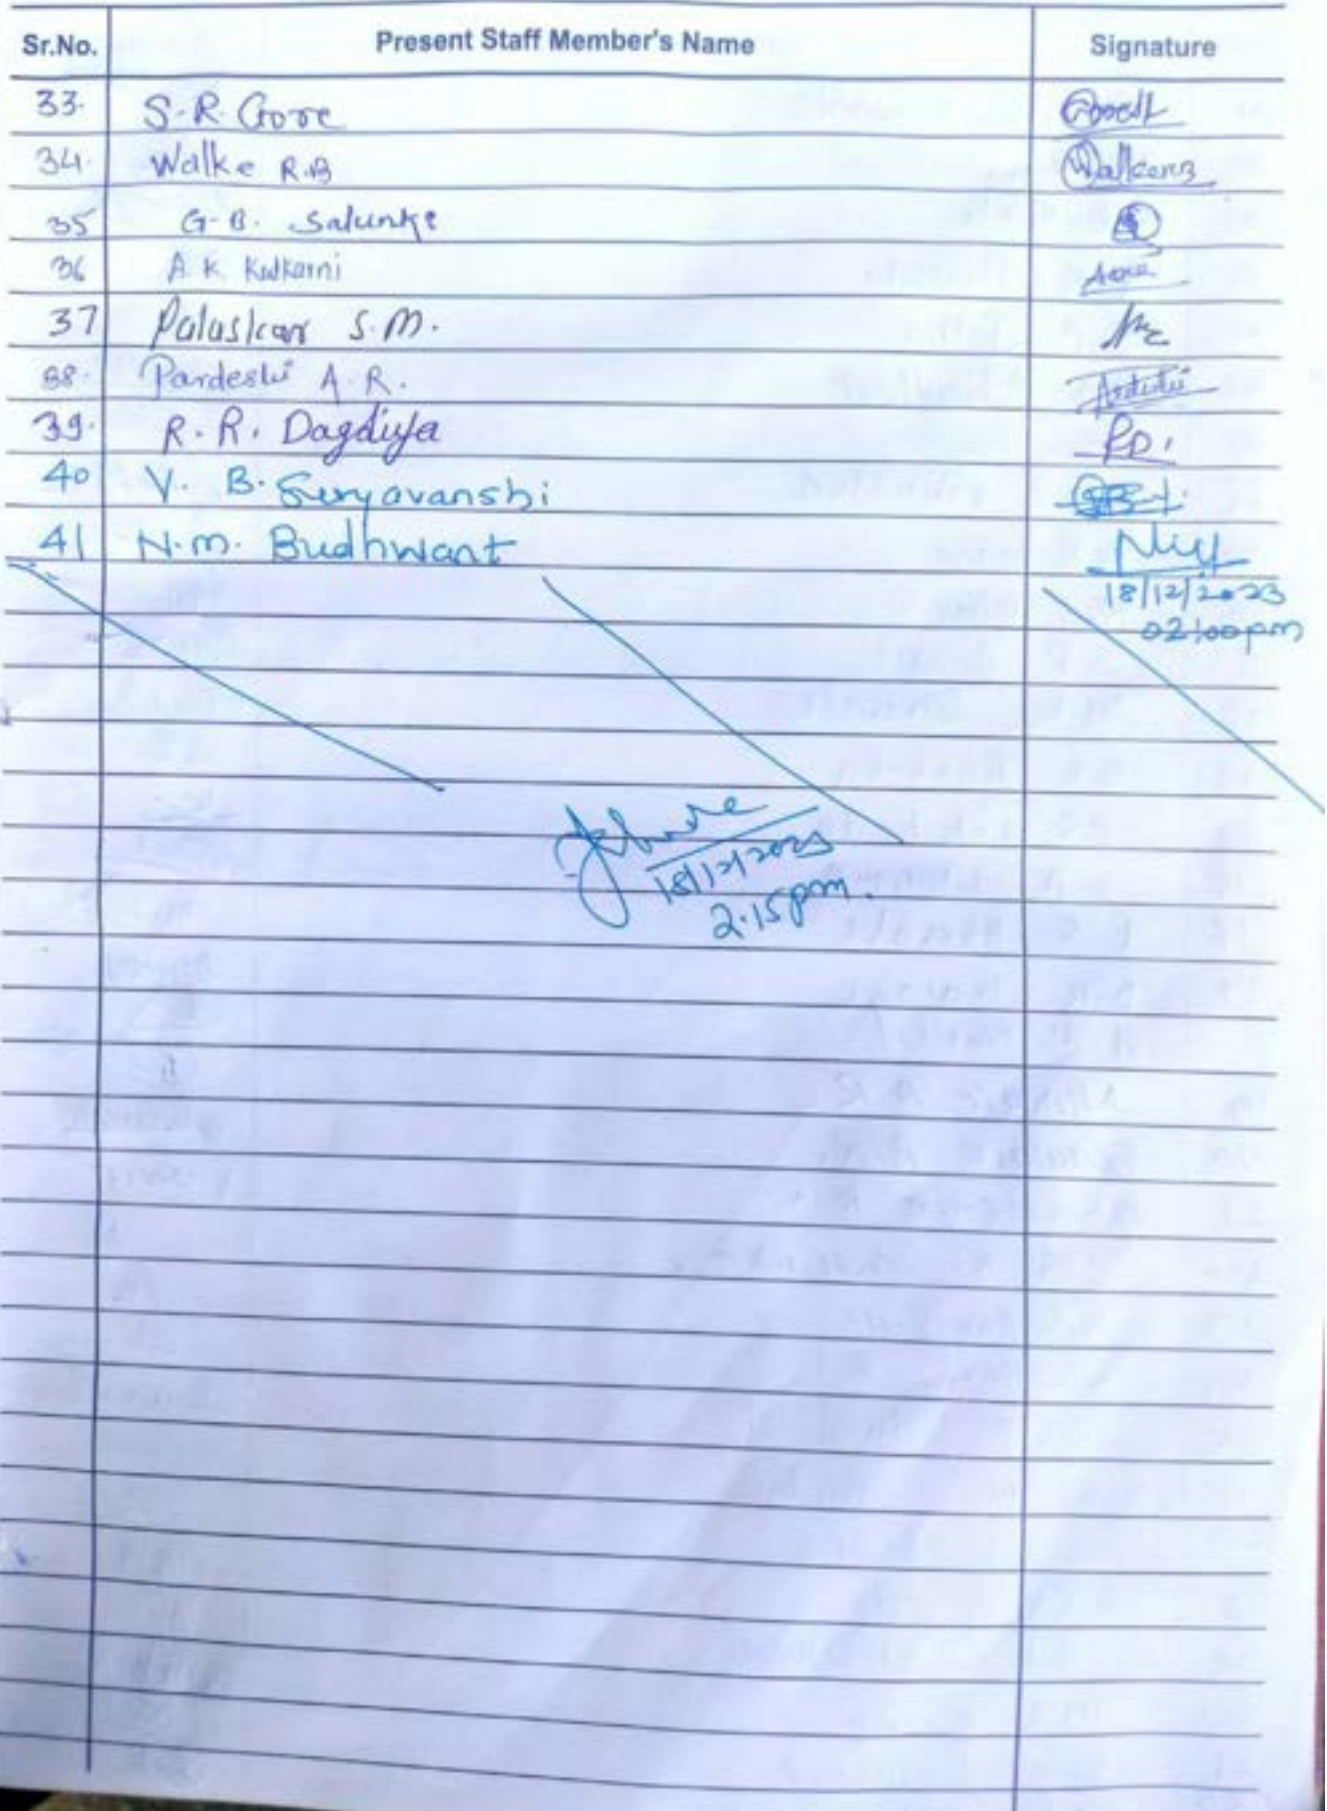 Sr.No. Present Staff Member's Name Signature
33. S.R. Gore
34. Walke R.B
35 G.B. Salunke
36 A.K. Kulkarni
37 Palaskar S.M.
38. Pardeshi A.R.
39. R.R. Dagdiya RD.
40 V. B. Suryavanshi
41 N.M. Budhwant
18/12/2023
02:00pm
18/12/2023
2.15pm.